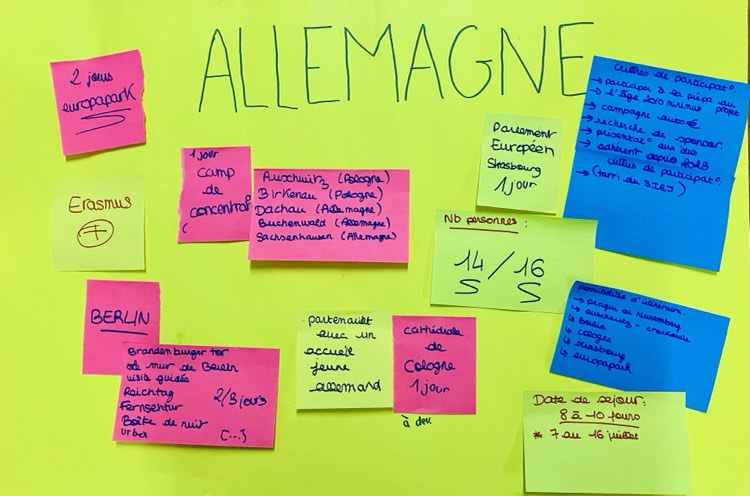 ALLEMAGNE
2 jours
europapark
Erasmus
7
1 jour
camp
de
concentrat°
(
Auschwitz (Pologne)
Birkenau (Pologne)
Dachau (Allemagne)
Buchenwald (Allemagne)
Sachsenhausen (Allemagne)
Parlement
Européen
Strasbourg
1 jour
critères de participat°
→ participer à la prépa du
→ campagne
→ recherche de sponsor
→ présentat° aux
→ adhérent depuis
critères de participat°
Nb personnes :
14 / 16
BERLIN
Brandenburger tor
le mur de Berlin
visite guidée
Reichtag
Fernsehtur
2/3 jours
Boîte de nuit
urbex
(...)
partenariat
avec un
accueil
jeune
allemand
cathédrale
de
Cologne
1 jour
à dev.
possibilités d'itinéraire
↳ prague ou Nuremberg
↳ auschwitz - cracovie
↳ Berlin
↳ cologne
↳ strasbourg
↳ europapark
Date de sejour :
8 à 10 jours
* 7 au 16 juillet